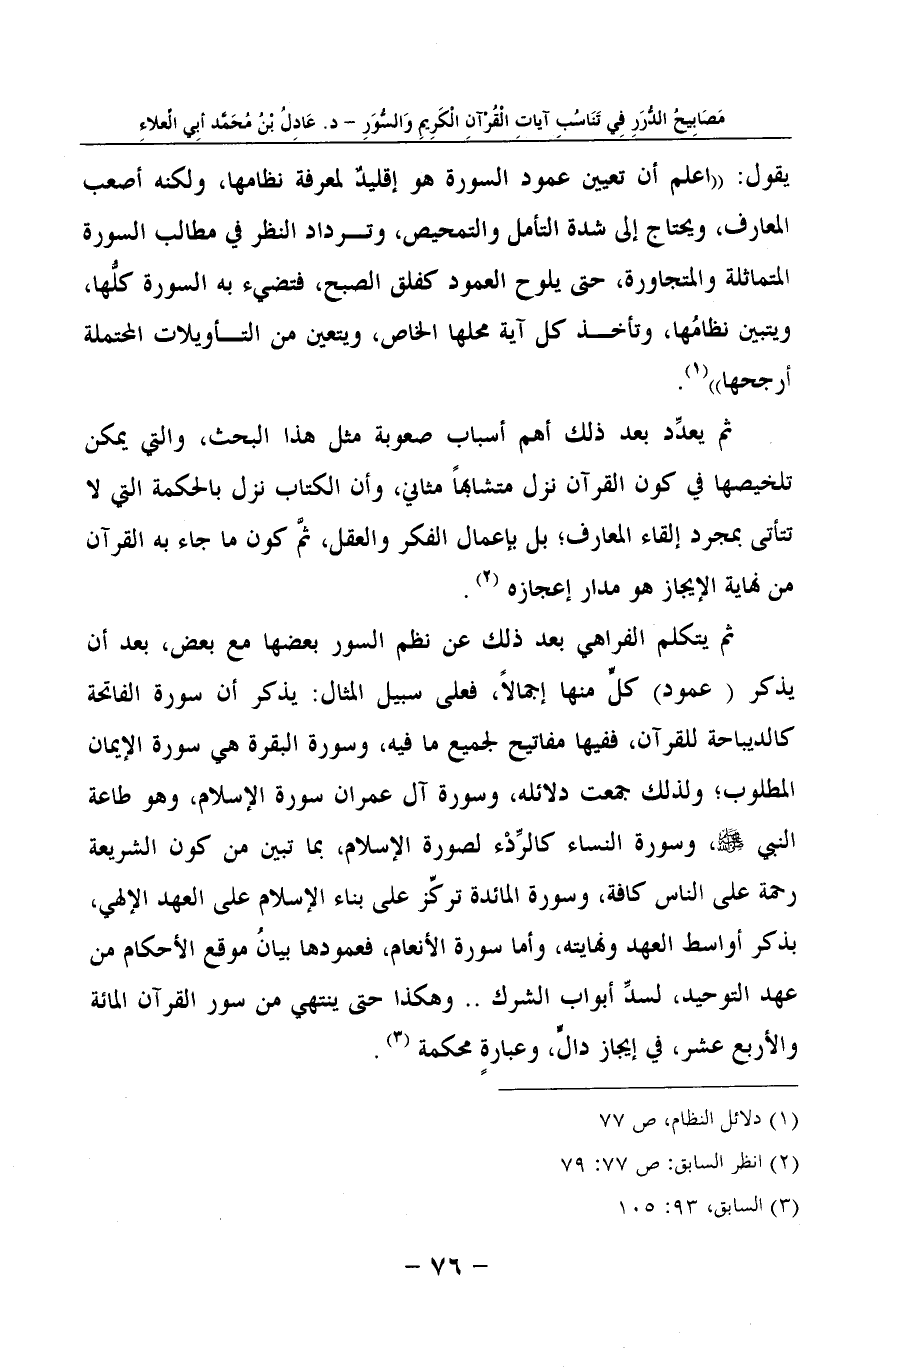 مَصَابِيحُ الدُّرَرِ فِي تَنَاسُبِ آيَاتِ الْقُرْآنِ الْكَرِيمِ وَالسُّوَرِ – د. عَادِلُ بْنُ مُحَمَّد أَبِي الْعَلَاءِ
يقول: ((اعلم أن تعيين عمود السورة هو إقليدٌ لمعرفة نظامها، ولكنه أصعب
المعارف، ويحتاج إلى شدة التأمل والتمحيص، وتـــرداد النظر في مطالب السورة
المتماثلة والمتجاورة، حتى يلوح العمود كفلق الصبح، فتضيء به السورة كلُّها،
ويتبين نظامُها، وتأخـــذ كل آية محلها الخاص، ويتعين من التـــأويلات المحتملة
أرجحها))(١).
ثم يعدِّد بعد ذلك أهم أسباب صعوبة مثل هذا البحث، والتي يمكن
تلخيصها في كون القرآن نزل متشابهاً مثاني، وأن الكتاب نزل بالحكمة التي لا
تتأتى بمجرد إلقاء المعارف؛ بل بإعمال الفكر والعقل، ثمَّ كون ما جاء به القرآن
من نهاية الإيجاز هو مدار إعجازه (٢).
ثم يتكلم الفراهي بعد ذلك عن نظم السور بعضها مع بعض، بعد أن
يذكر ( عمود) كلٍّ منها إجمالاً، فعلى سبيل المثال: يذكر أن سورة الفاتحة
كالديباجة للقرآن، ففيها مفاتيح لجميع ما فيه، وسورة البقرة هي سورة الإيمان
المطلوب؛ ولذلك جمعت دلائله، وسورة آل عمران سورة الإسلام، وهو طاعة
النبي ﷺ، وسورة النساء كالرِّدْء لصورة الإسلام، بما تبين من كون الشريعة
رحمة على الناس كافة، وسورة المائدة تركِّز على بناء الإسلام على العهد الإلهي،
بذكر أواسط العهد ونهايته، وأما سورة الأنعام، فعمودها بيانُ موقع الأحكام من
عهد التوحيد، لسدِّ أبواب الشرك .. وهكذا حتى ينتهي من سور القرآن المائة
والأربع عشر، في إيجاز دالٍّ، وعبارةٍ محكمة (٣).
(١) دلائل النظام، ص ٧٧
(٢) انظر السابق: ص ٧٧: ٧٩
(٣) السابق، ٩٣: ١٠٥
– ٧٦ –